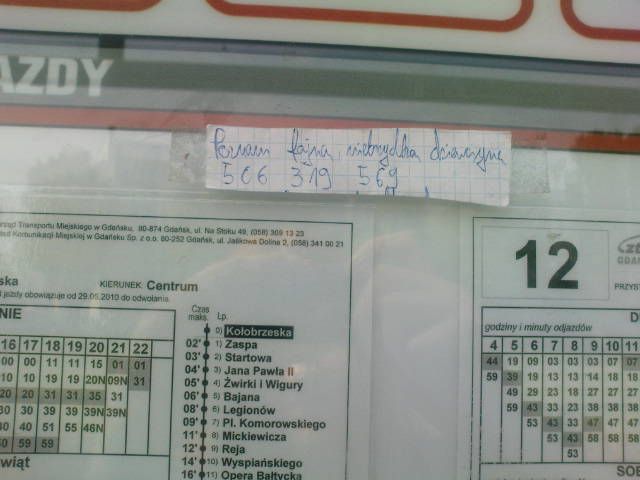 AZDY
Poznam fajną, niebrzydką dziewczynę
506 319 569
Zarząd Transportu Miejskiego w Gdańsku, 80-874 Gdańsk, ul. Na Stoku 49, (058) 309 13 23
Zakład Komunikacji Miejskiej w Gdańsku Sp. z o.o. 80-252 Gdańsk, ul. Jaśkowa Dolina 2, (058) 341 00 21
ska KIERUNEK Centrum
jazdy obowiązuje od 29.05.2010 do odwołania.
NIE
16 17 18 19 20 21 22
00 00 11 11 15 01 01
10 10 19 19 20N 09N 31
31 31 35 31
30 30 39 39 39N 39N
40 40 51 55 46N
50 59 59
wiąt
Czas maks. Lp.
0) Kołobrzeska
02' 1) Zaspa
03' 2) Startowa
04' 3) Jana Pawła II
05' 4) Żwirki i Wigury
06' 5) Bajana
08' 6) Legionów
09' 7) Pl. Komorowskiego
11' 8) Mickiewicza
12' 9) Reja
14' 10) Wyspiańskiego
16' 11) Opera Bałtycka
12
zt
GDAŃ
PRZYST
D
godziny i minuty odjazdów
4 5 6 7 8 9 10 11
44 19 09 03 03 03 07 07
59 39 19 13
49 29 23 18 27 27 27
59 43 33 28 37 38 38
53 43 33 47 47 47
53 43 58 58 58
53
SOB